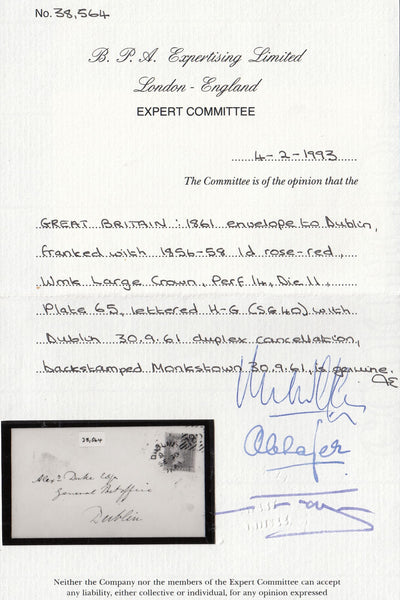 No. 38,564
B. P. A. Expertising Limited
London - England
EXPERT COMMITTEE
4-2-1993
The Committee is of the opinion that the
GREAT BRITAIN: 1861 envelope to Dublin,
franked with 1856-58 1d rose-red,
Wmk Large Crown, Perf 14, Die II,
Plate 65, lettered H-G (SG40) with
Dublin 30.9.61 duplex cancellation,
backstamped Monkstown 30.9.61, is genuine.
38,564
Alexr Duke Esqr
General Post Office
Dublin
Neither the Company nor the members of the Expert Committee can accept
any liability, either collective or individual, for any opinion expressed